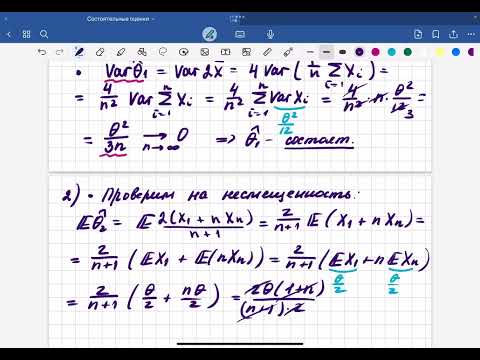 Состоятельные оценки
• Var θ̂₁ = Var 2X̄ = 4 Var ( 1/n Σᵢ₌₁ⁿ Xᵢ ) =
= 4/n² Var Σᵢ₌₁ⁿ Xᵢ = 4/n² Σᵢ₌₁ⁿ Var Xᵢ = 4/n² · n · θ²/12 =
θ²/12
3
= θ²/3n → 0 ⇒ θ̂₁ – состоят.
n→∞
2) • Проверим на несмещенность:
𝔼θ̂₂ = 𝔼 2(X₁ + nXₙ)/(n+1) = 2/(n+1) 𝔼 (X₁ + nXₙ) =
= 2/(n+1) (𝔼X₁ + 𝔼(nXₙ)) = 2/(n+1) (𝔼X₁ + n𝔼Xₙ)
θ/2 θ/2
= 2/(n+1) (θ/2 + nθ/2) = 2θ(1+n)/((n+1)·2)